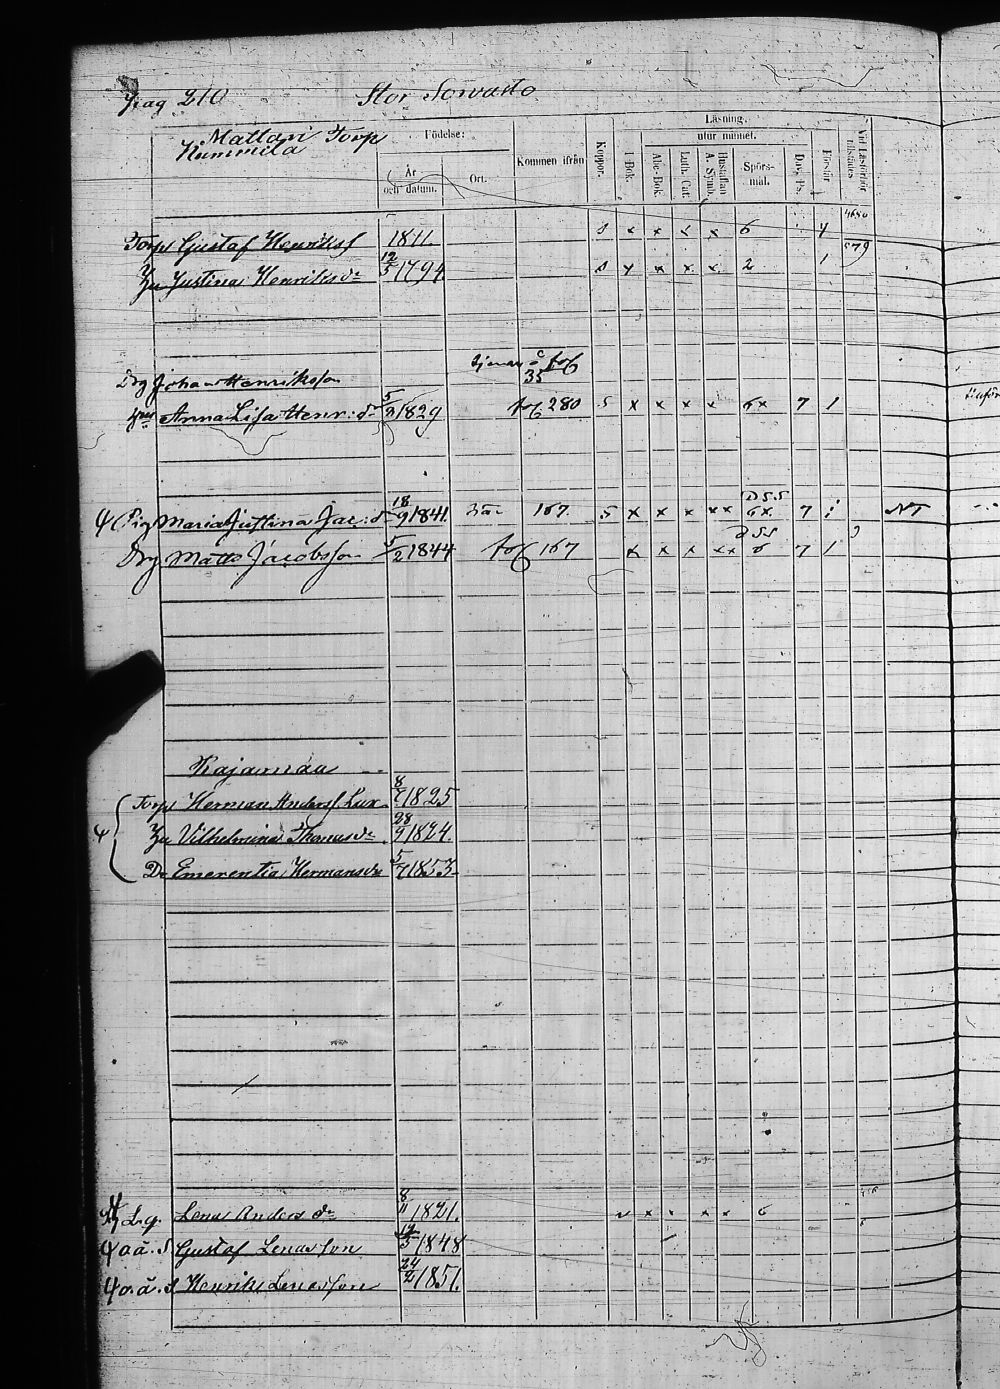 Pag 210 Stor Sorvasto
Mattari Torp
Hummila
Födelse:
År och datum.
Ort.
Kommen ifrån
Koppor.
Läsning.
utur minnet.
I Bok.
Abc-Bok.
Luth. Cat.
Hustaflan A. Symb.
Spörs-mål.
Dav. Ps.
Förstår
Vid Läsförhör tillstädes
Torp Gustaf Henrikss 1811 s x x x x 6
Hu Justina Henriksdr 12/5 1794 s x x x x 2 1
579
Drg Johan Henriksson 35
Anna Lisa Henr:dr 5/9 1829 280 s x x x x 6x 7 1
Pig Maria Justina Jac:dr 18/9 1841. 167 s x x x xx 6x 7
Drg Matts Jacobsson 5/2 1844 167 x x x xx 6 7 1
Kajamäa
Torp Herman Anderss Lux 8/7 1825
Hu Vilhelmina Thomasdr 28/9 1824.
Dr Emerentia Hermansdr 5/7 1853
Lena Andersdr 8/11 1821. x x x x 6
o.ä. S Gustaf Lenasson 12/5 1848
o.ä. S Henrik Lenasson 24/2 1851.